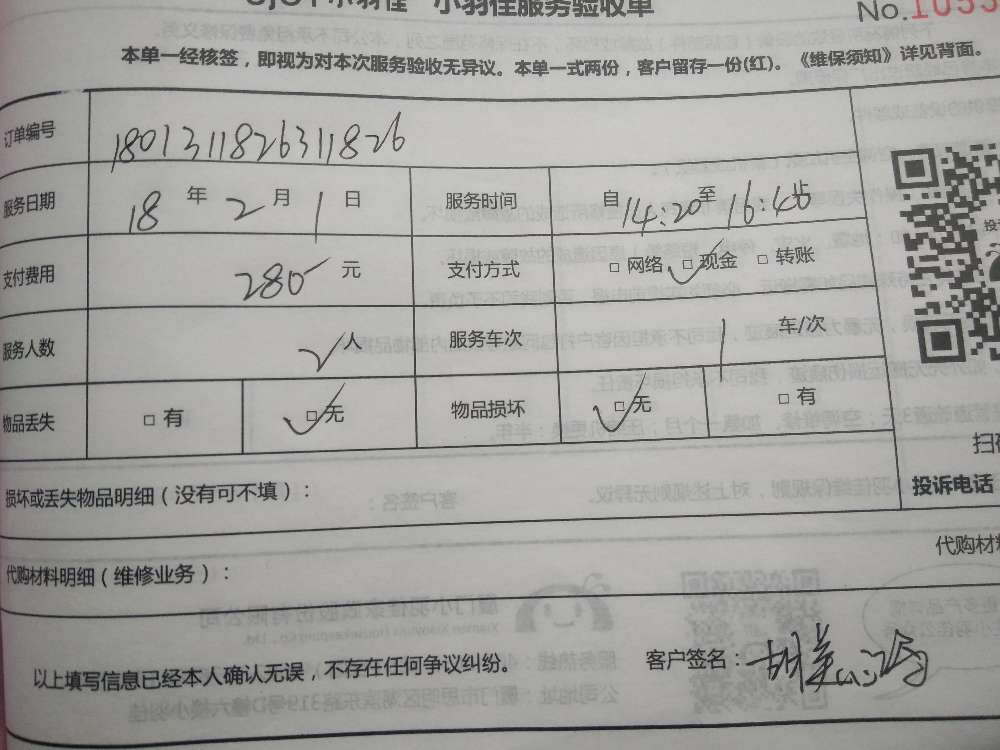 小羽佳服务验收单
No.1055
本单一经核签，即视为对本次服务验收无异议。本单一式两份，客户留存一份(红)。《维保须知》详见背面。
订单编号 180131182631 1826
服务日期 18 年 2 月 1 日 服务时间 自 14:20 至 16:46 止
支付费用 280 元 支付方式 □ 网络 □ 现金 □ 转账
服务人数 2 人 服务车次 1 车/次
物品丢失 □ 有 □ 无 物品损坏 □ 无 □ 有
损坏或丢失物品明细（没有可不填）：
投诉电话
代购材料明细（维修业务）：
以上填写信息已经本人确认无误，不存在任何争议纠纷。 客户签名：